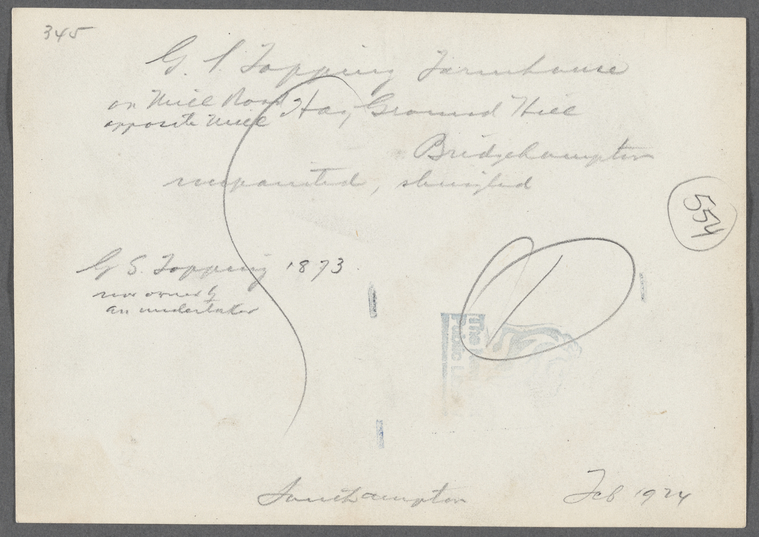 345
G. S. Topping Farmhouse
on Mill Road Hay Ground Hill
opposite Mill
Bridgehampton
unpainted, shingled
554
G S. Topping 1873
now owned by
an undertaker
The
Public L
Southampton Feb 1924